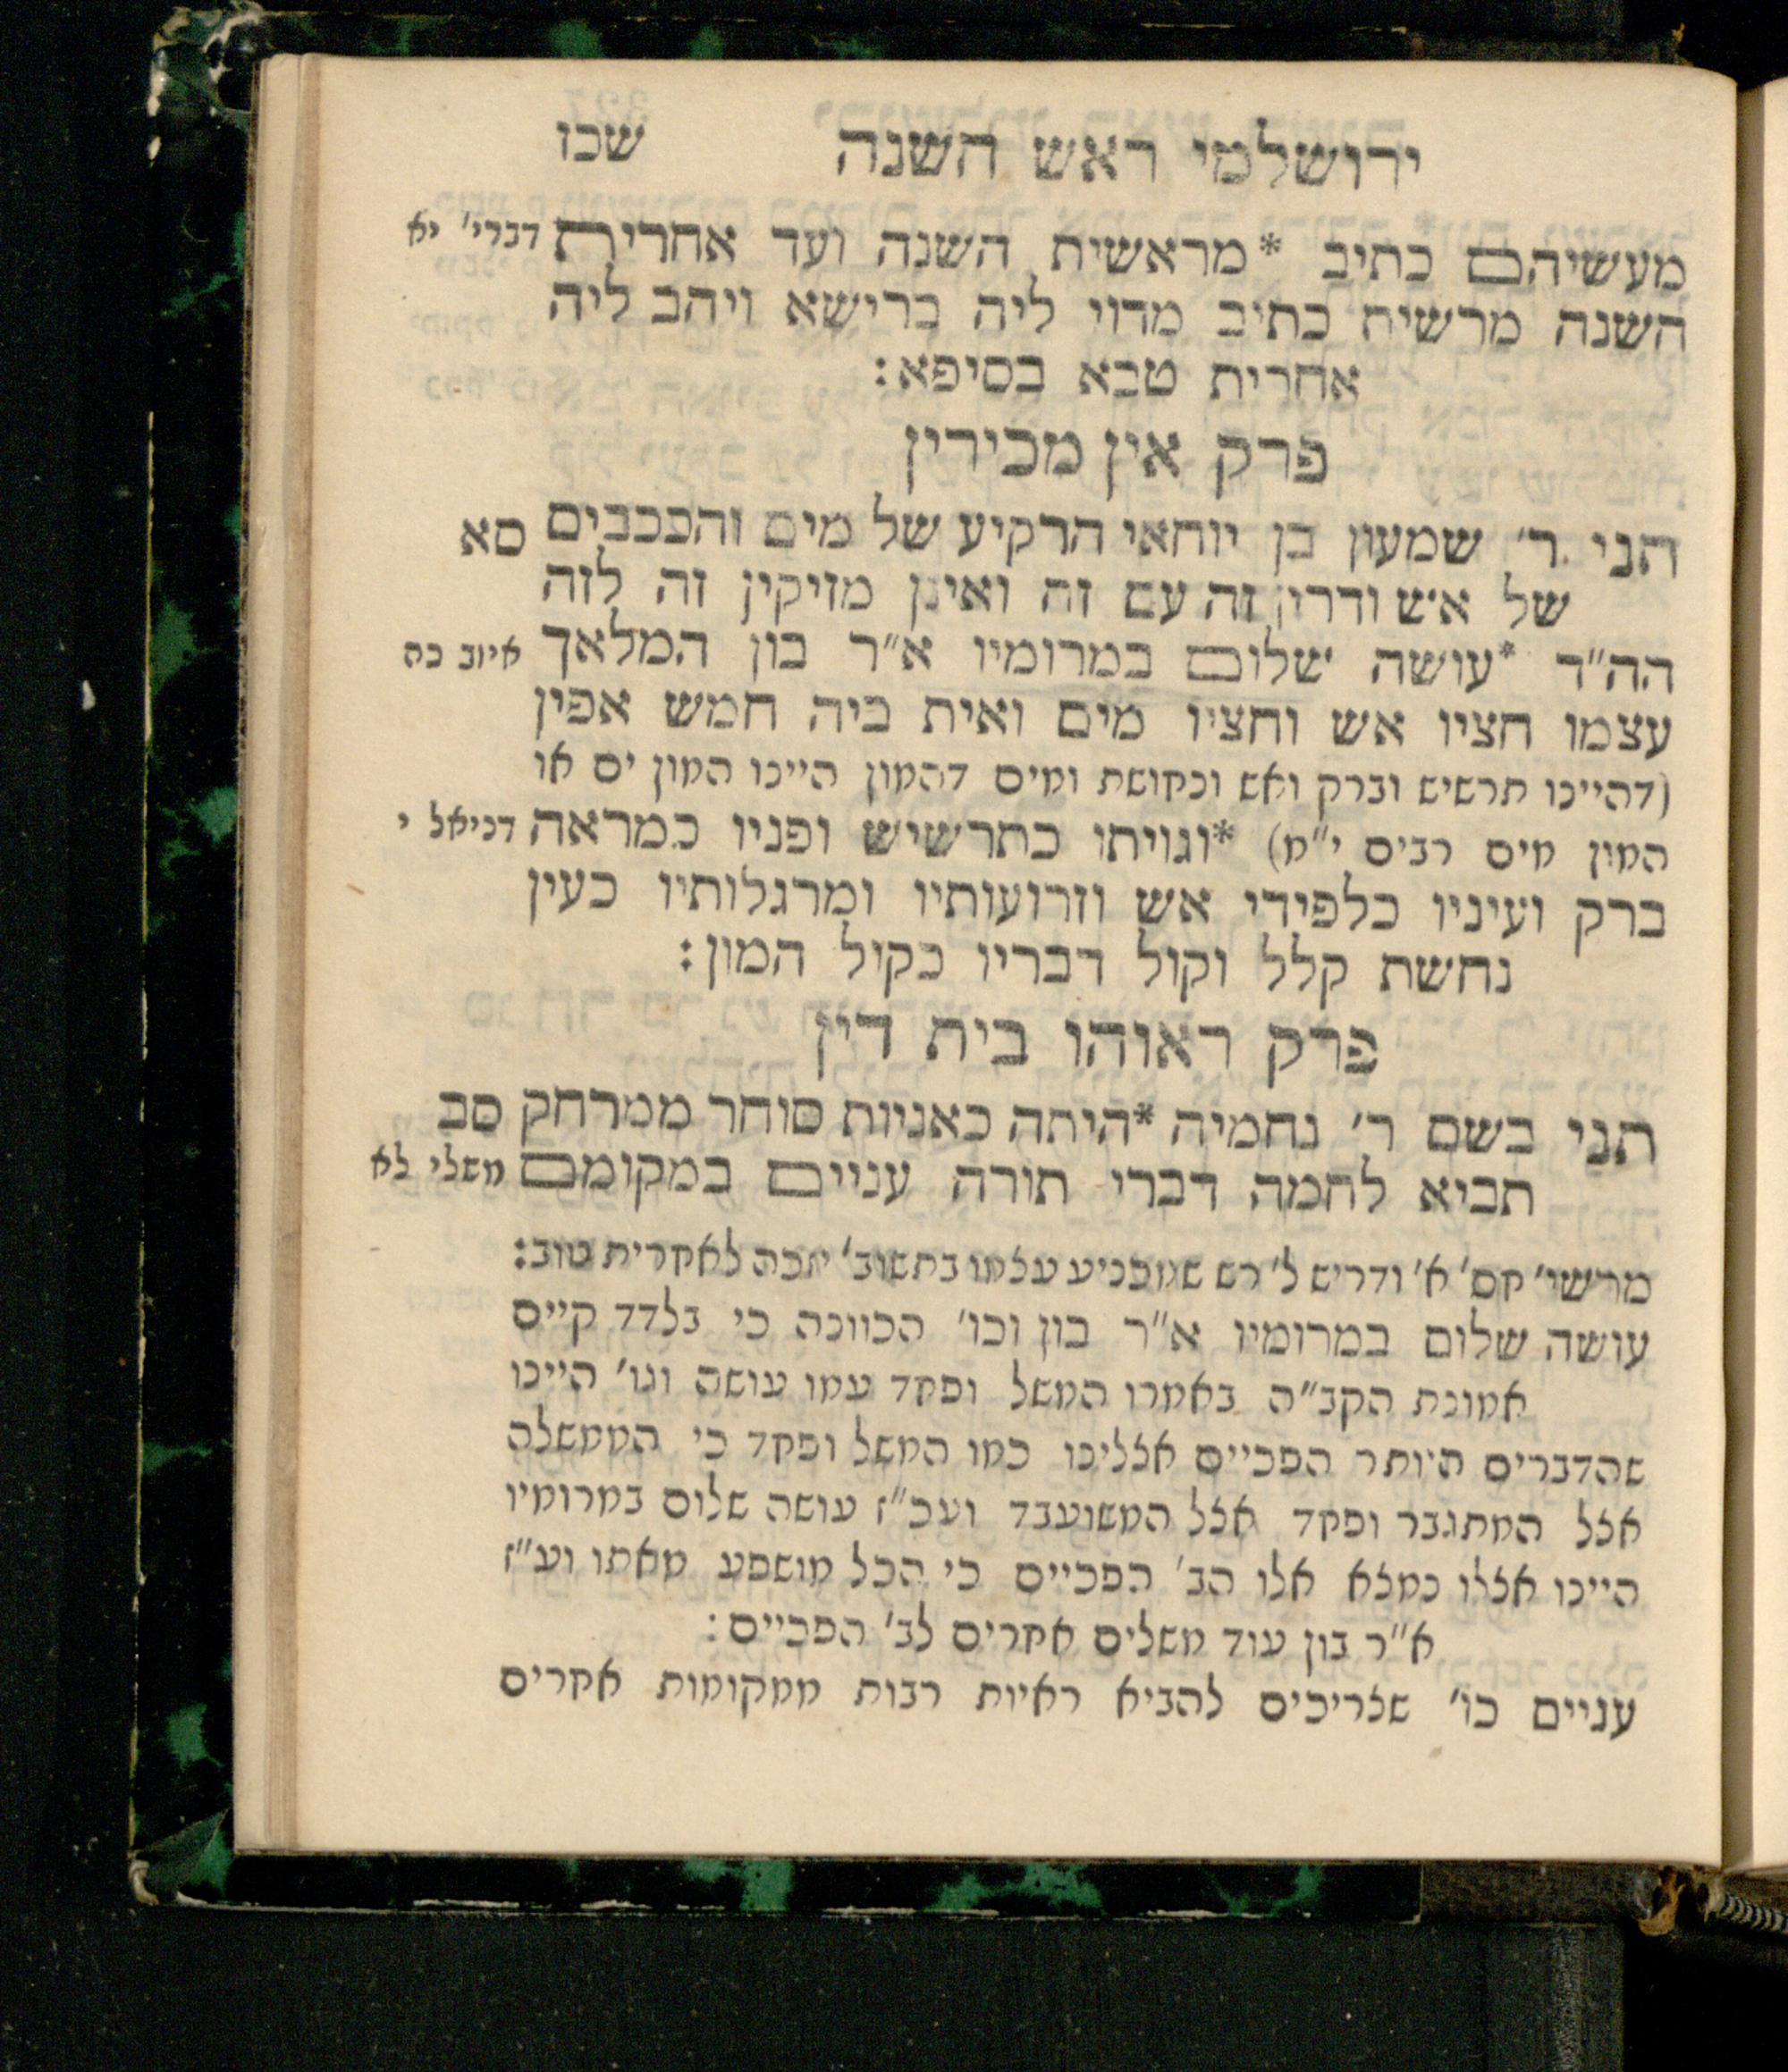 ירושלמי ראש השנה שכו
מעשיהם כתיב *מראשית השנה ועד אחרית דברי׳ יא
השנה מרשית כתיב מדוי ליה ברישא ויהב ליה
אחרית טבא בסיפא:
פרק אין מכירין
תני ר׳ שמעון בן יוחאי הרקיע של מים והככבים סא
של איש ודרין זה עם זה ואינן מזיקין זה לזה
הה״ד *עושה שלום במרומיו א״ר בון המלאך איוב כה
עצמו חציו אש וחציו מים ואית ביה חמש אפין
(דהיינו תרשיש וברק ואש ונחושת ומים דהמון היינו המון ים או
המון מים רבים י״מ) *וגויתו כתרשיש ופניו כמראה דניאל י
ברק ועיניו כלפידי אש וזרועותיו ומרגלותיו כעין
נחשת קלל וקול דבריו כקול המון:
פרק ראוהו בית דין
תני בשם ר׳ נחמיה *היתה כאניות סוחר ממרחק סב
תביא לחמה דברי תורה עניים במקומם משלי לא
מרשי׳ חס׳ א׳ ודריש ל׳ רש שמכניע עצמו בתשוב׳ יזכה לאחרית טוב:
עושה שלום במרומיו א״ר בון וכו׳ הכוונה כי בלדד קיים
אמונת הקב״ה באמרו המשל ופחד עמו עושה וגו׳ היינו
שהדברים היותר הפכיים אצלינו כמו המשל ופחד כי הממשלה
אצל המתגבר ופחד אצל המשועבד ועכ״ז עושה שלום במרומיו
היינו אצלו נמצא אלו הב׳ הפכיים כי הכל מושפע מאתו וע״ז
א״ר בון עוד משלים אחרים לב׳ הפכיים:
עניים כו׳ שצריכים להביא ראיות רבות ממקומות אחרים